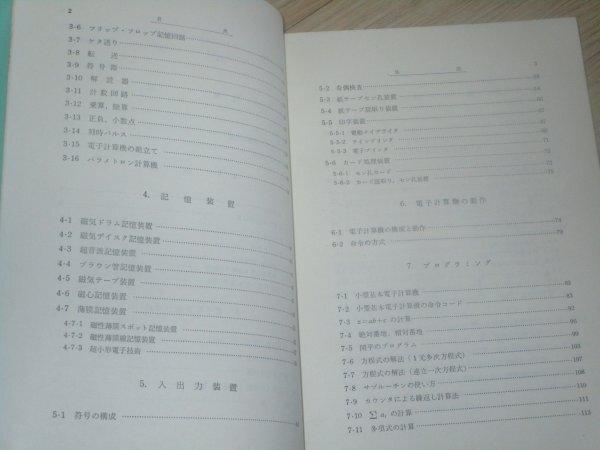 2
目次
3-6 フリップ・フロップ記憶回路
3-7 ケタ送り
3-8 転送
3-9 符号器
3-10 解読器
3-11 計数回路
3-12 乗算，除算
3-13 正負，小数点
3-14 同時パルス
3-15 電子計算機の組立て
3-16 パラメトロン計算機
4. 記憶装置
4-1 磁気ドラム記憶装置
4-2 磁気デイスク記憶装置
4-3 超音波記憶装置
4-4 ブラウン管記憶装置
4-5 磁気テープ装置
4-6 磁心記憶装置
4-7 薄膜記憶装置
4-7-1 磁性薄膜スポット記憶装置
4-7-2 磁性薄膜線記憶装置
4-7-3 超小形電子技術
5. 入出力装置
5-1 符号の構成
目次
3
5-2 奇偶検査
5-3 紙テープセン孔装置
5-4 紙テープ読取り装置
5-5 印字装置
5-5-1 電動タイプライタ
5-5-2 ラインプリンタ
5-5-3 電子プリンタ
5-6 カード処理装置
5-6-1 セン孔カード
5-6-2 カード読取り，セン孔装置
6. 電子計算機の動作
6-1 電子計算機の構成と動作
6-2 命令の方式 79
7. プログラミング
7-1 小型基本電子計算機 83
7-2 小型基本電子計算機の命令コード
7-3 z=ab+c の計算 92
7-4 絶対番地，相対番地
7-5 開平のプログラム
7-6 方程式の解法（1元多次方程式） 103
7-7 方程式の解法（連立一次方程式） 107
7-8 サブルーチンの使い方 108
7-9 カウンタによる繰返し計算法 110
7-10 ∑ aᵢ の計算 111
7-11 多項式の計算 113